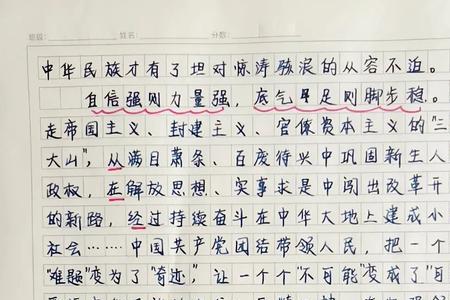 班级： 姓名： 分数：
中华民族才有了坦对惊涛骇浪的从容不迫。
自信强则力量强，底气足则脚步稳。
走帝国主义、封建主义、官僚资本主义的“三
大山”，从满目萧条、百废待兴中巩固新生人
政权，在解放思想、实事求是中闯出改革开
的新路，经过持续奋斗在中华大地上建成小
社会……中国共产党团结带领人民，把一个
“难题”变为了“奇迹”，让一个个“不可能”变成了“可